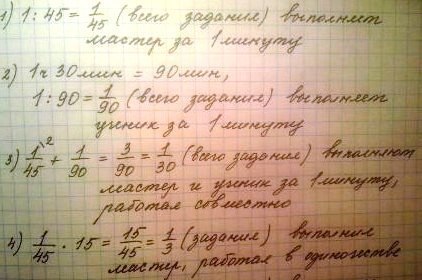 1) 1 : 45 = 1/45 (всего задания) выполняет
мастер за 1 минуту
2) 1ч 30мин = 90мин,
1 : 90 = 1/90 (всего задания) выполняет
ученик за 1 минуту
3) 1/45 ² + 1/90 = 3/90 = 1/30 (всего задания) выполняют
мастер и ученик за 1 минуту,
работая совместно
4) 1/45 · 15 = 15/45 = 1/3 (задания) выполнил
мастер, работая в одиночестве